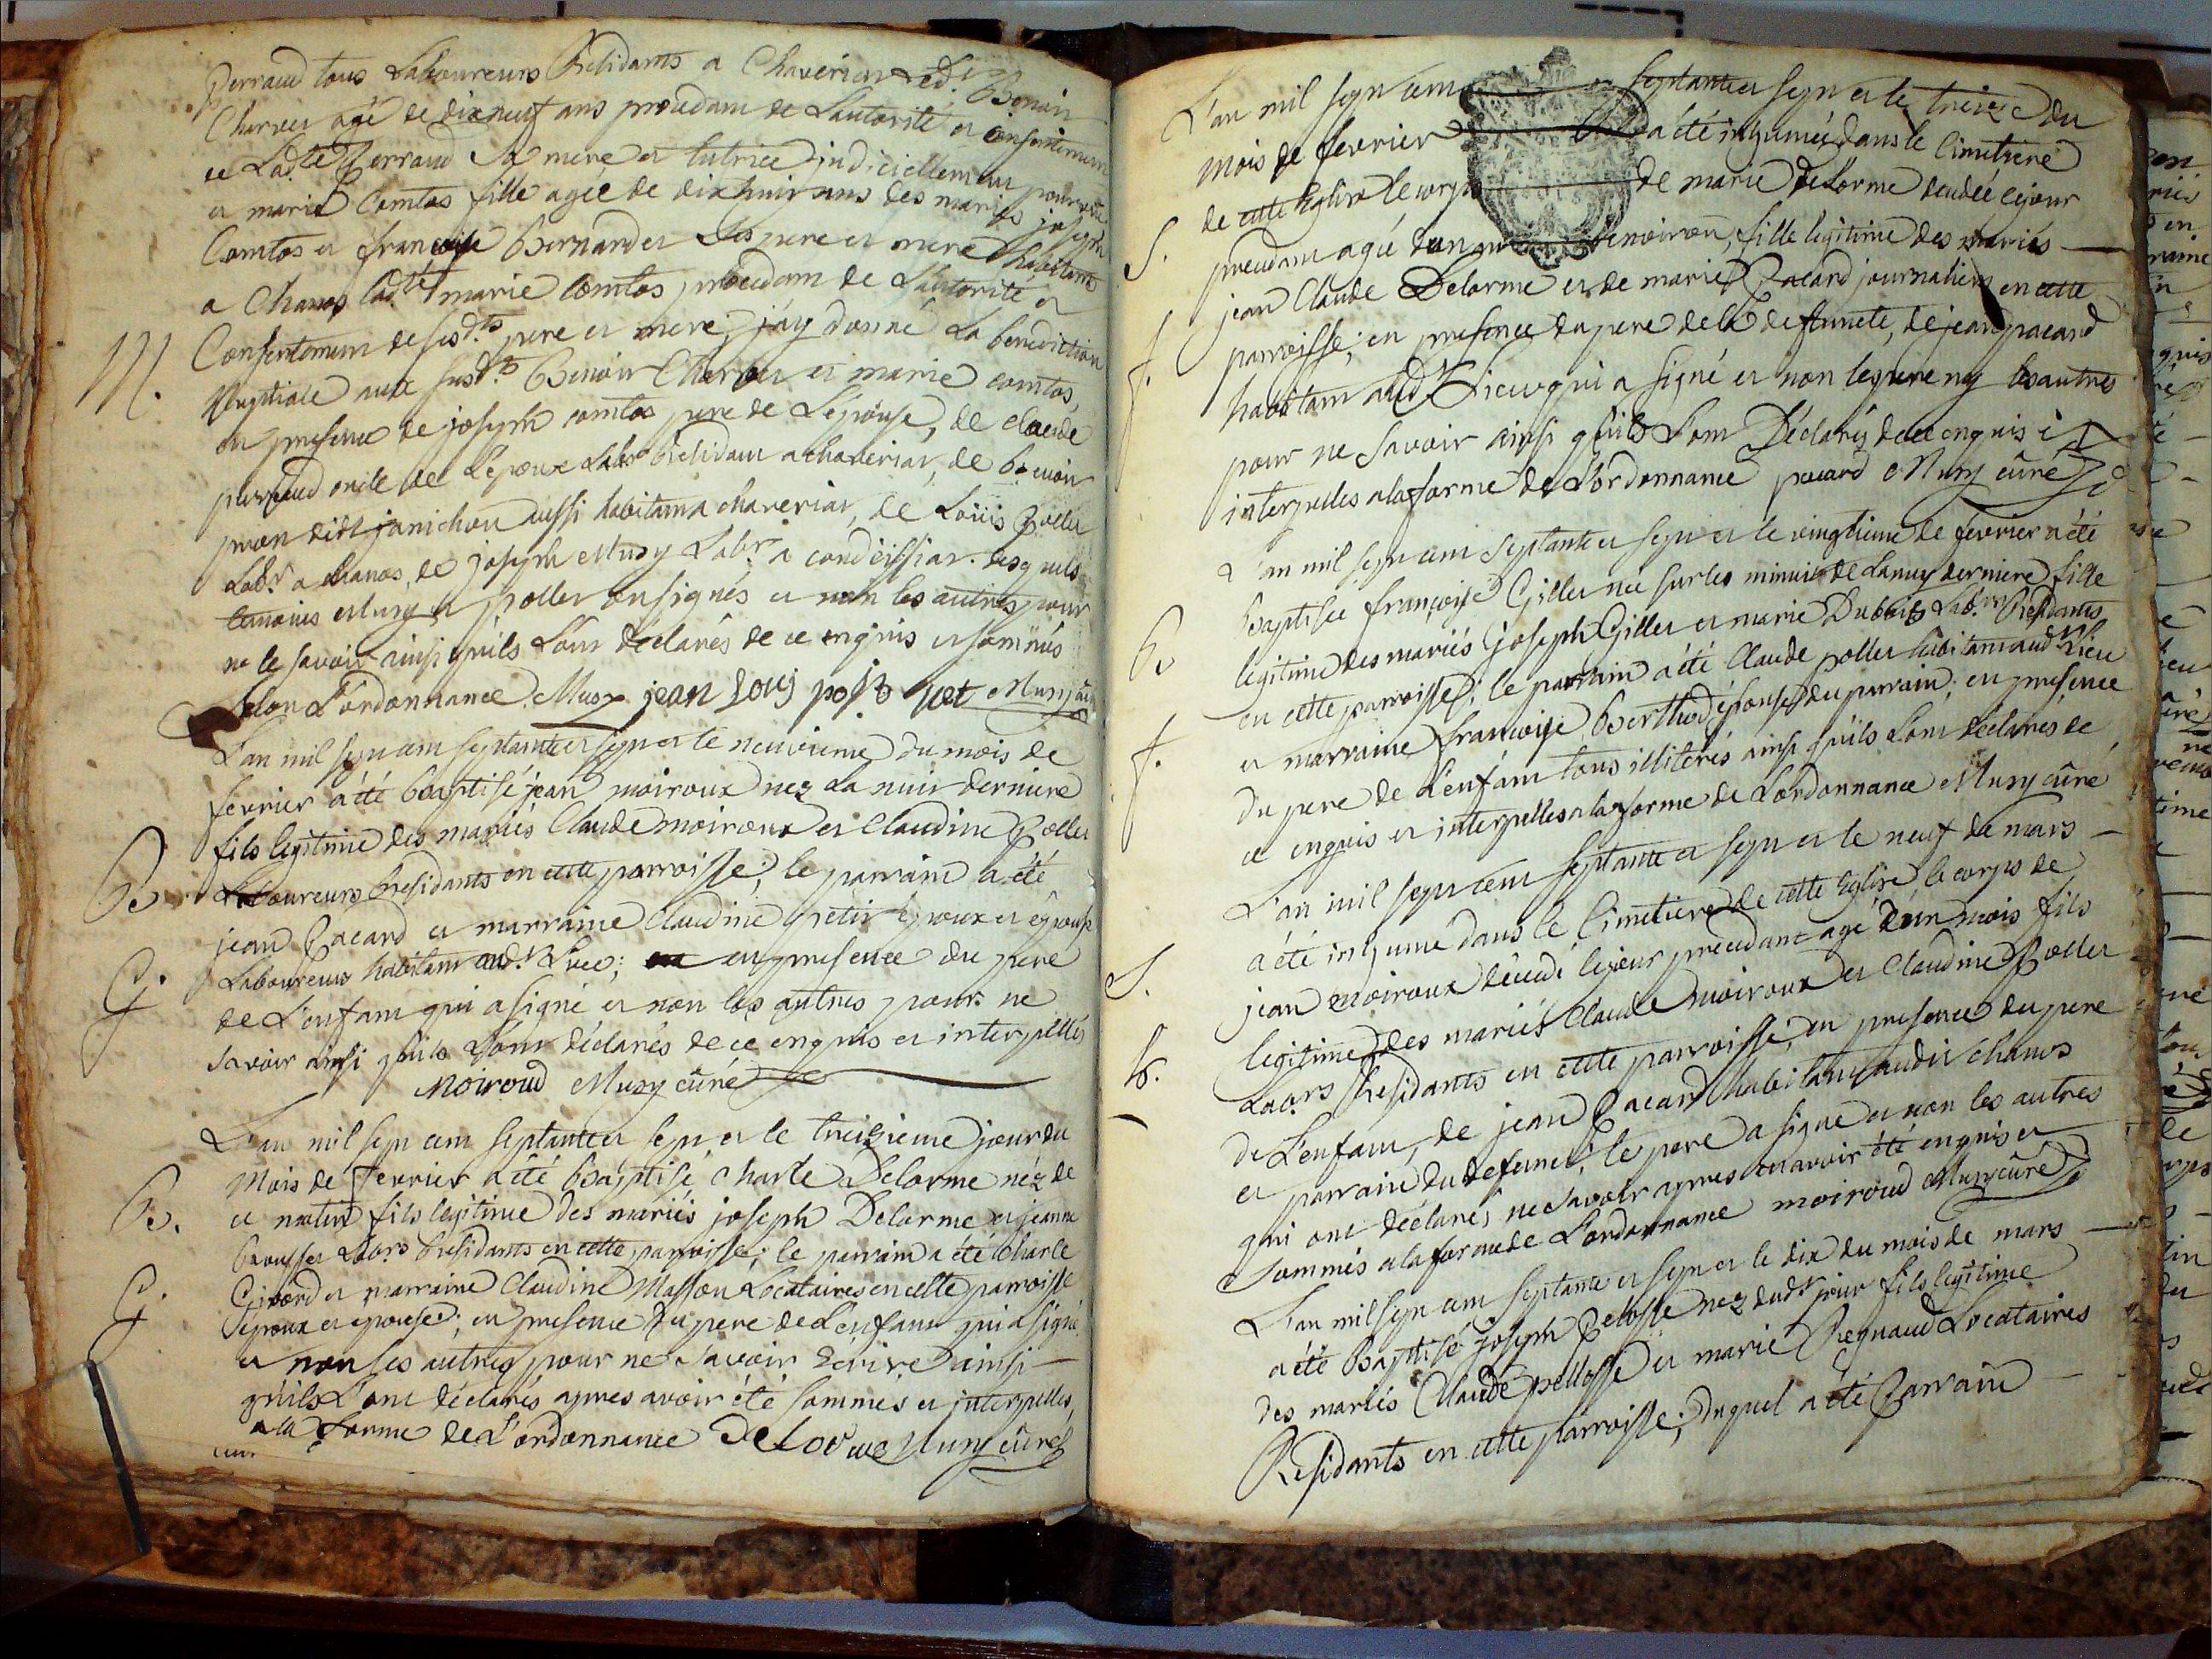 perraud tous Laboureurs Residants a Chaveriat Led.t Benoit
Charvet agé de dix neuf ans procedant de Lautorité et consentement
de Lad.te perraud sa mere et tutrice judiciellement pourvüe
et marie Comtos fille agée de dix huit ans des mariés joseph
Comtos et françoise Bernard et ses pere et mere habitants
a Chanos lad.te marie Comtos procedant de Lautorité et
Consentement de sesd.ts pere et mere, j'ay donné La benediction
M.
Nuptiale aux susd.ts Benoit Charvet et marie comtos,
en presence de joseph comtos pere de L'épouse, de claude
perraud oncle de L'epoux Lab.r Residant a chaveriat, de benoit
dit janichon aussi habitant a chaveriat, de Loüis Pollet
Lab.r a chanos, de joseph Musy Lab.r a condeissiat. desquels
temoins Musy et pollet ont signés et non les autres pour
ne le savoir ainsi quils L'ont déclarés de ce enquis et sommés
selon L'ordonnance. Musy jean Louj Musy curé
L'an mil sept cent septante et sept et le neuvieme du mois de
fevrier a été Baptisé jean moiroux nez La nuit derniere
fils legitime des mariés Claude moiroux et Claudine Pollet
B.
Laboureurs Residants en cette parroisse; le parrain a été
jean Pacard et marraine Claudine petit epoux et épouse
G.
Laboureurs habitant aud.t Lieu; en presence du pere
de L'enfant qui a signé et non les autres pour ne
savoir ainsi quils L'ont déclarés de ce enquis et interpellés
Moiroud Musy cüré
L'an mil sept cent septante et sept et le treizieme jour du
Mois de Fevrier a été Baptisé Charle Delorme néz de
B.
ce matin fils legitime des mariés joseph Delorme et jeanne
Brousset Lab.rs Residants en cette parroisse; le parrain a été Charle
G.
Girord et marraine Claudine Masson Locataires en cette parroisse
epoux et epouse; en presence du pere de L'enfant qui a signé
et non les autres pour ne savoir écrire ainsi
quils L'ont déclarés apres avoir été sommés et interpellés,
a la Forme de L'ordonnance Delorme Musy cüré
L'an mil sept cent septante et sept et le treize du
mois de fevrier a été inhumée dans le Cimetiere
de cette Eglise le corps de marie deLorme décédée le jour
S.
precedant agée d'un an environ, fille legitime des mariés
jean Claude Delorme et de marie Pacard journaliers en cette
f.
parroisse; en presence du pere de la deffunte, de jean pacard
habitant aud.t Lieu qui a signé et non le pere ny les autres
pour ne savoir ainsi quils L'ont Déclarés de ce enquis et
interpelles a la forme de L'ordonnance pacard Musy cüré
L'an mil sept cent septante et sept et le vingtieme de fevrier a été
Baptisée françoise Gillet née sur les minuit de La nuit derniere fille
B.
legitime des mariés joseph Gillet et marie Dubois Lab.rs Residants
en cette parroisse; le parrain a été Claude pollet habitant aud.t Lieu
f.
et marraine françoise Berthod épouse du parrain; en presence
du pere de L'enfant tous illiterés ainsi quils L'ont déclarés de
ce enquis et interpellés a la forme de L'ordonnance Musy cüré
L'an mil sept cent septante et sept et le neuf de mars
a été inhumé dans le Cimetiere de cette Eglise le corps de
S.
jean moiroux décedé le jour precedant agé d'un mois fils
legitime des mariés Claude moiroux et Claudine Pollet
Lab.rs Residants en cette parroisse, en presence du pere
de L'enfant, de jean Pacard habitant audit chanos
et parrain du defunct; le pere a signé et non les autres
qui ont déclarés ne savoir apres en avoir été enquis et
sommés a la forme de L'ordonnance moiroud Musy cüré
L'an mil sept cent septante et sept et le dix du mois de mars
a été Baptisé joseph Pelosse nez dud.t jour fils legitime
des mariés Claude pellosse et marie Regnaud Locataires
Residants en cette parroisse; duquel a été Parrain